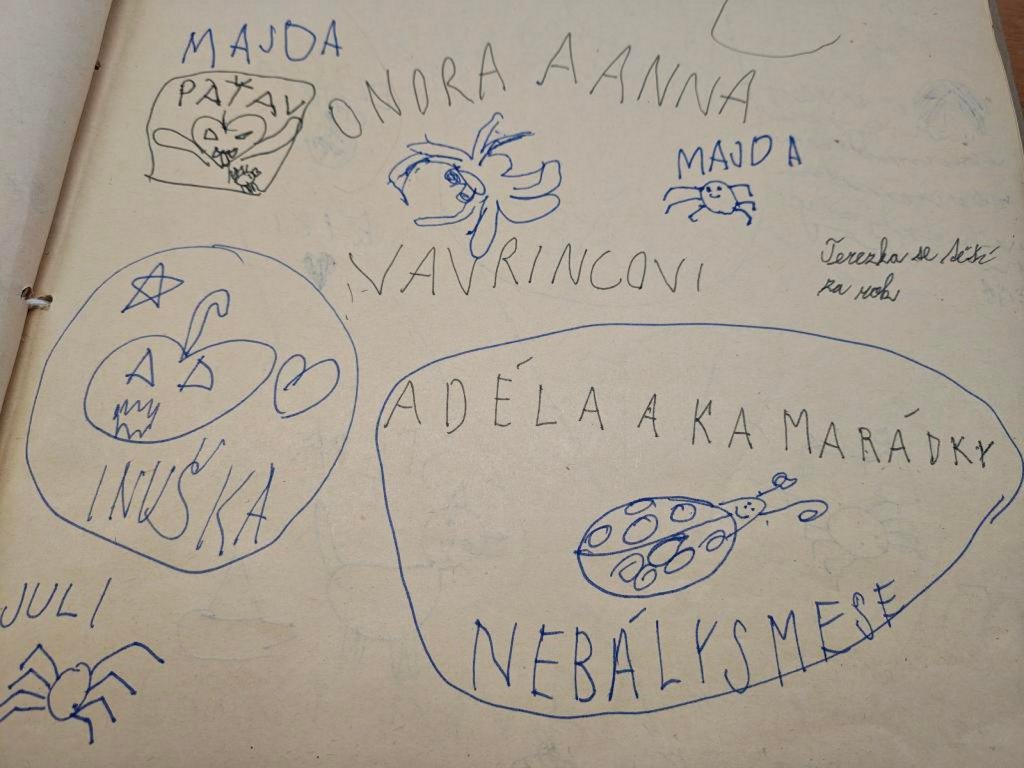 MAJDA
PATAV
ONDRA A ANNA
MAJDA
VAVRINCOVI
Terezka se těší
za rok
INUŠKA
ADÉLA A KAMARÁDKY
NEBÁLY SME SE
JULI